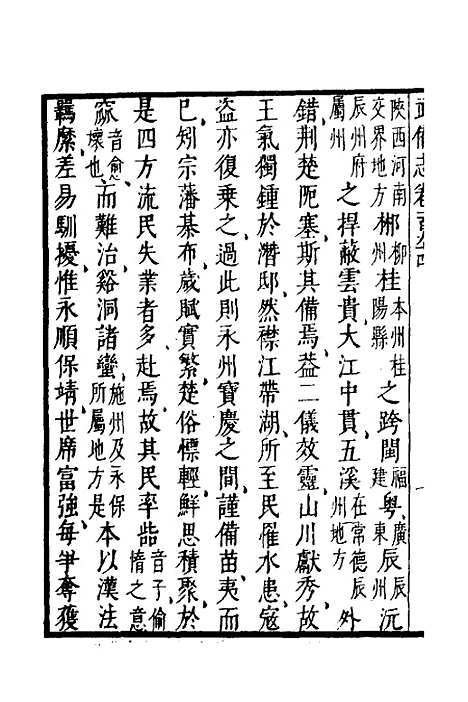 武備志卷
陝西河南交界地方郴柳州桂本州桂陽縣之跨閩福建粵廣東辰辰州沅
辰州府屬州之捍蔽雲貴大江中貫五溪在常德辰州地方外
錯荆楚阨塞斯其備焉葢二儀效靈山川獻秀故
王氣獨鍾於潛邸然襟江帶湖所至民罹水患寇
盜亦復乗之過此則永州寶慶之間謹備苗夷而
巳矧宗藩棊布歲賦實繁楚俗慓輕鮮思積聚於
是四方流民失業者多赴焉故其民率呰音子偷惰之意
窳音愈壞也而難治谿洞諸蠻施州及永保所屬地方是本以漢法
羈縻差易馴擾惟永順保靖世席富強每爭奪獲